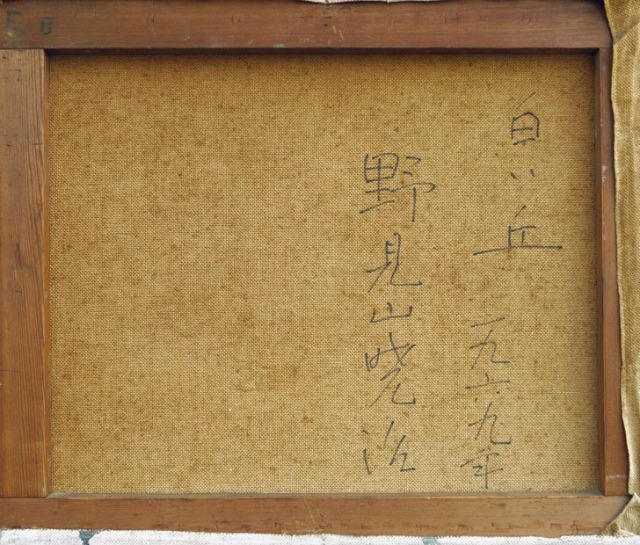 白い丘 一九六九年
野見山暁治